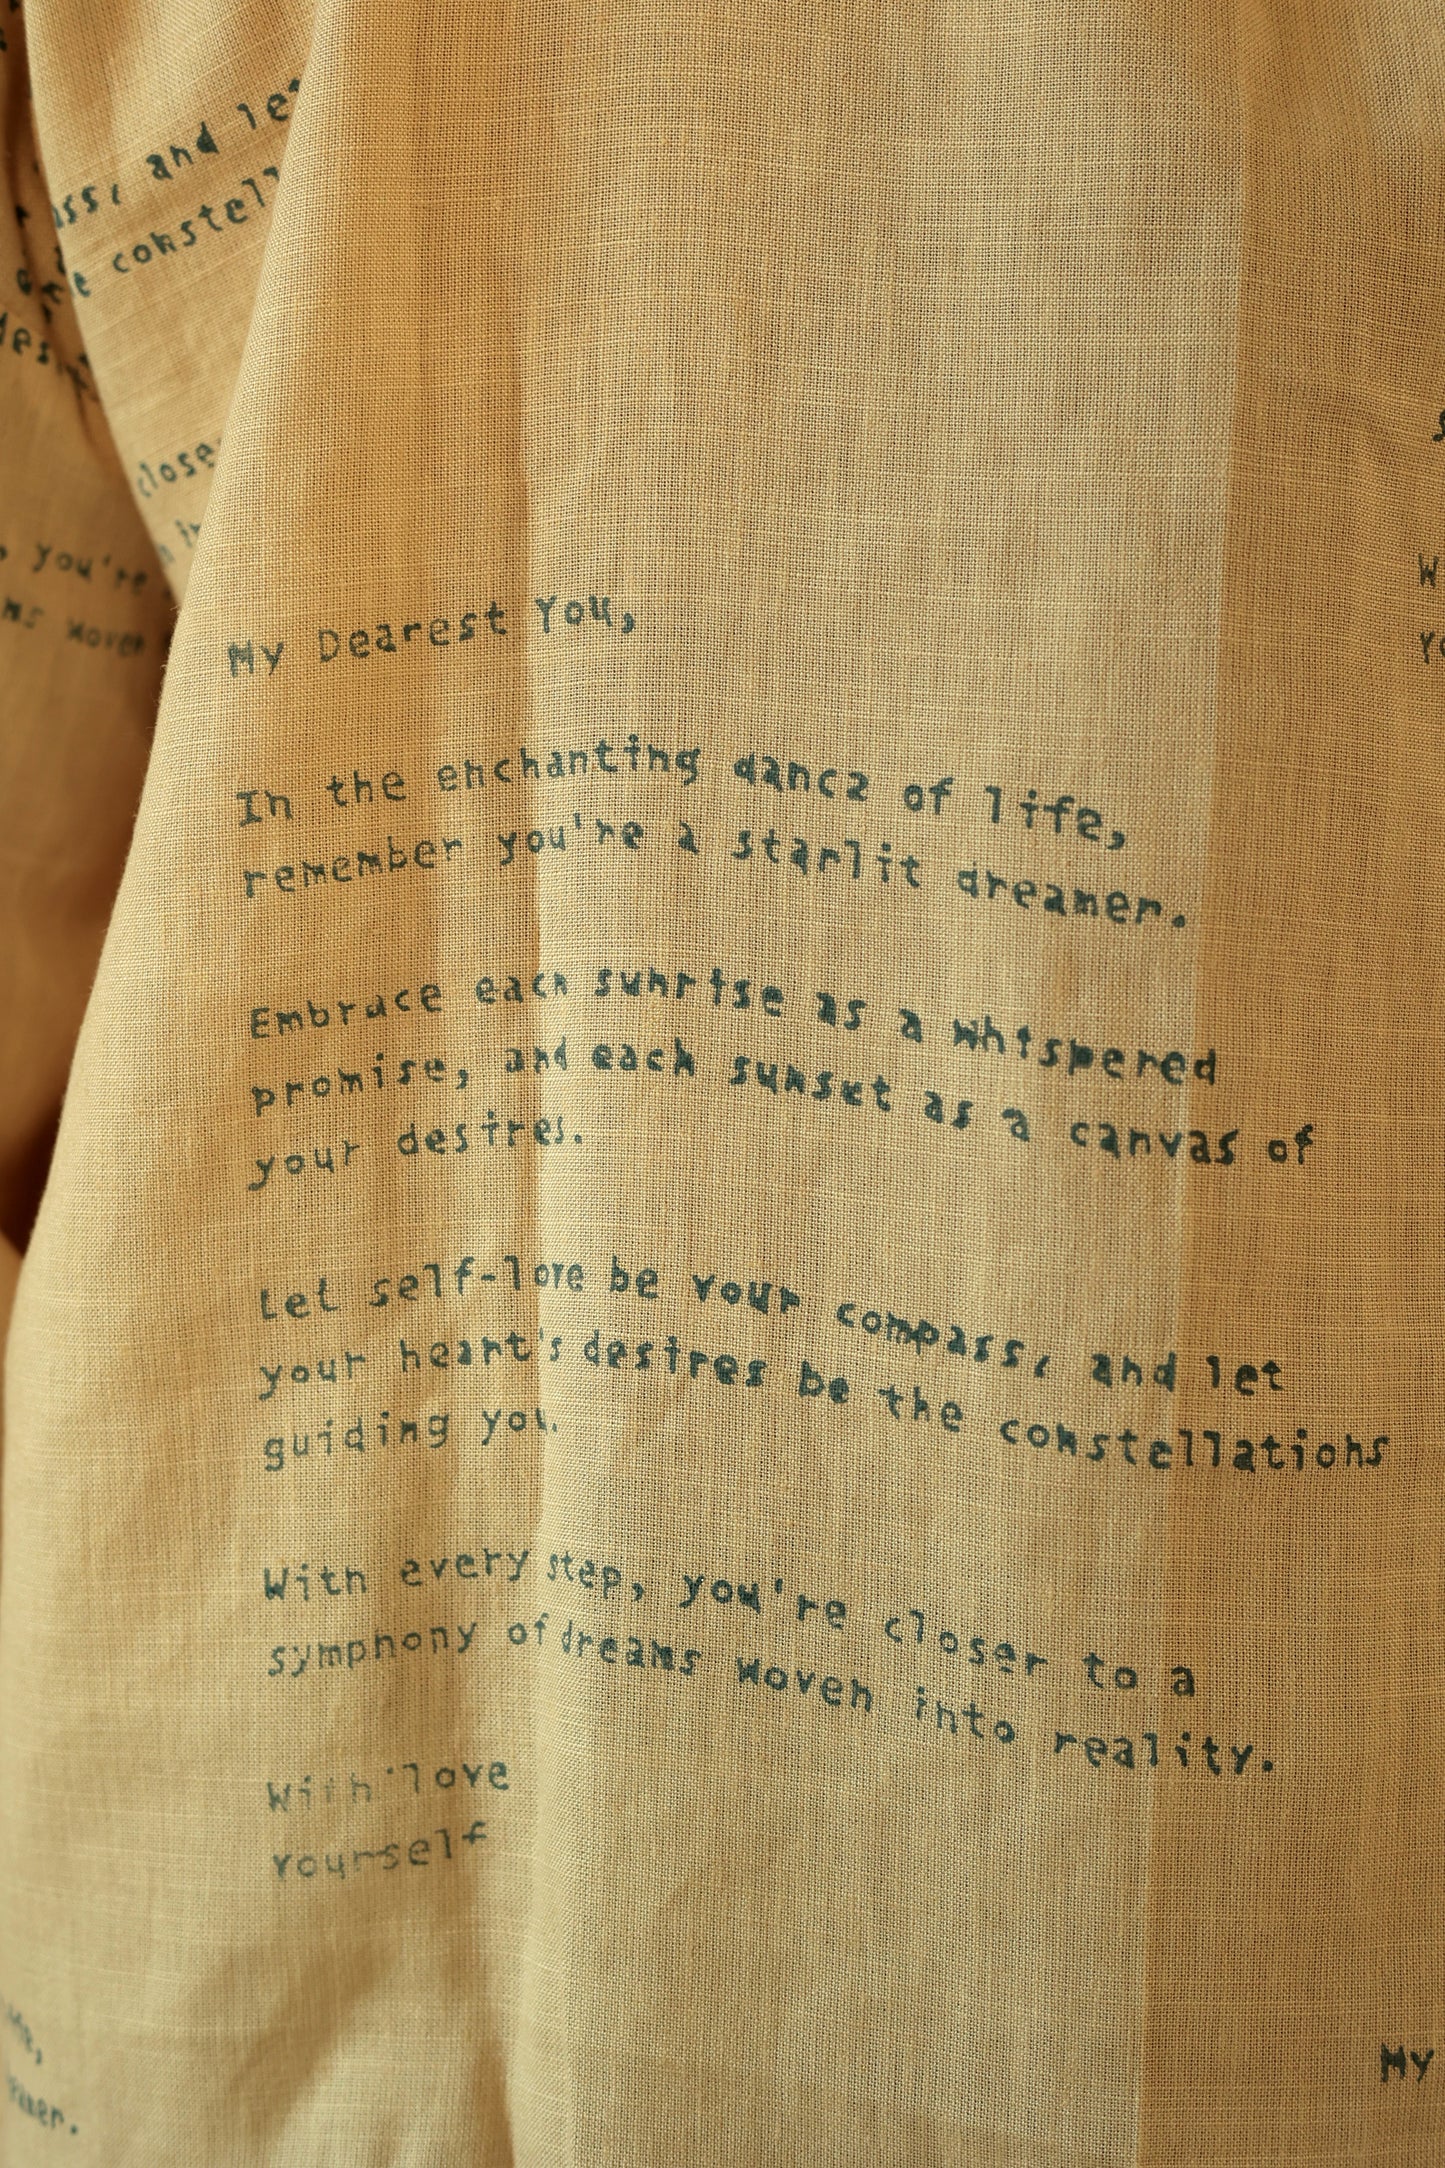 and let
constell
closer
you're
woven
My Dearest You,
In the enchanting dance of life,
remember you're a starlit dreamer.
Embrace each sunrise as a whispered
promise, and each sunset as a canvas of
your desires.
Let self-love be your compass, and let
your heart's desires be the constellations
guiding you.
With every step, you're closer to a
symphony of dreams woven into reality.
With love
Yourself
My